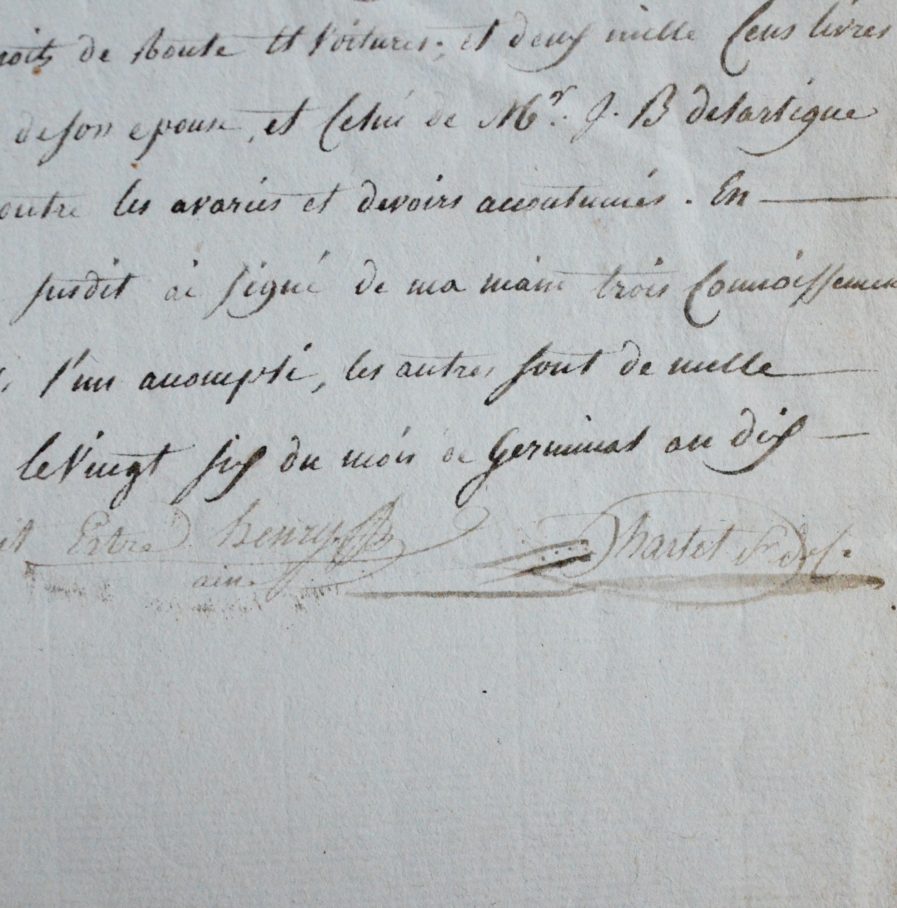 de Route et Voitures; et deux mille Cens livres
de son epouse, et Celui de Mr. J. B delartigue
outre les avaries et devoirs accoutumés. En
susdit ai signé de ma main trois Connoissemen
l'un accompli, les autres sont de nulle
le Vingt six du mois de Germinal an dix
henry
ainé